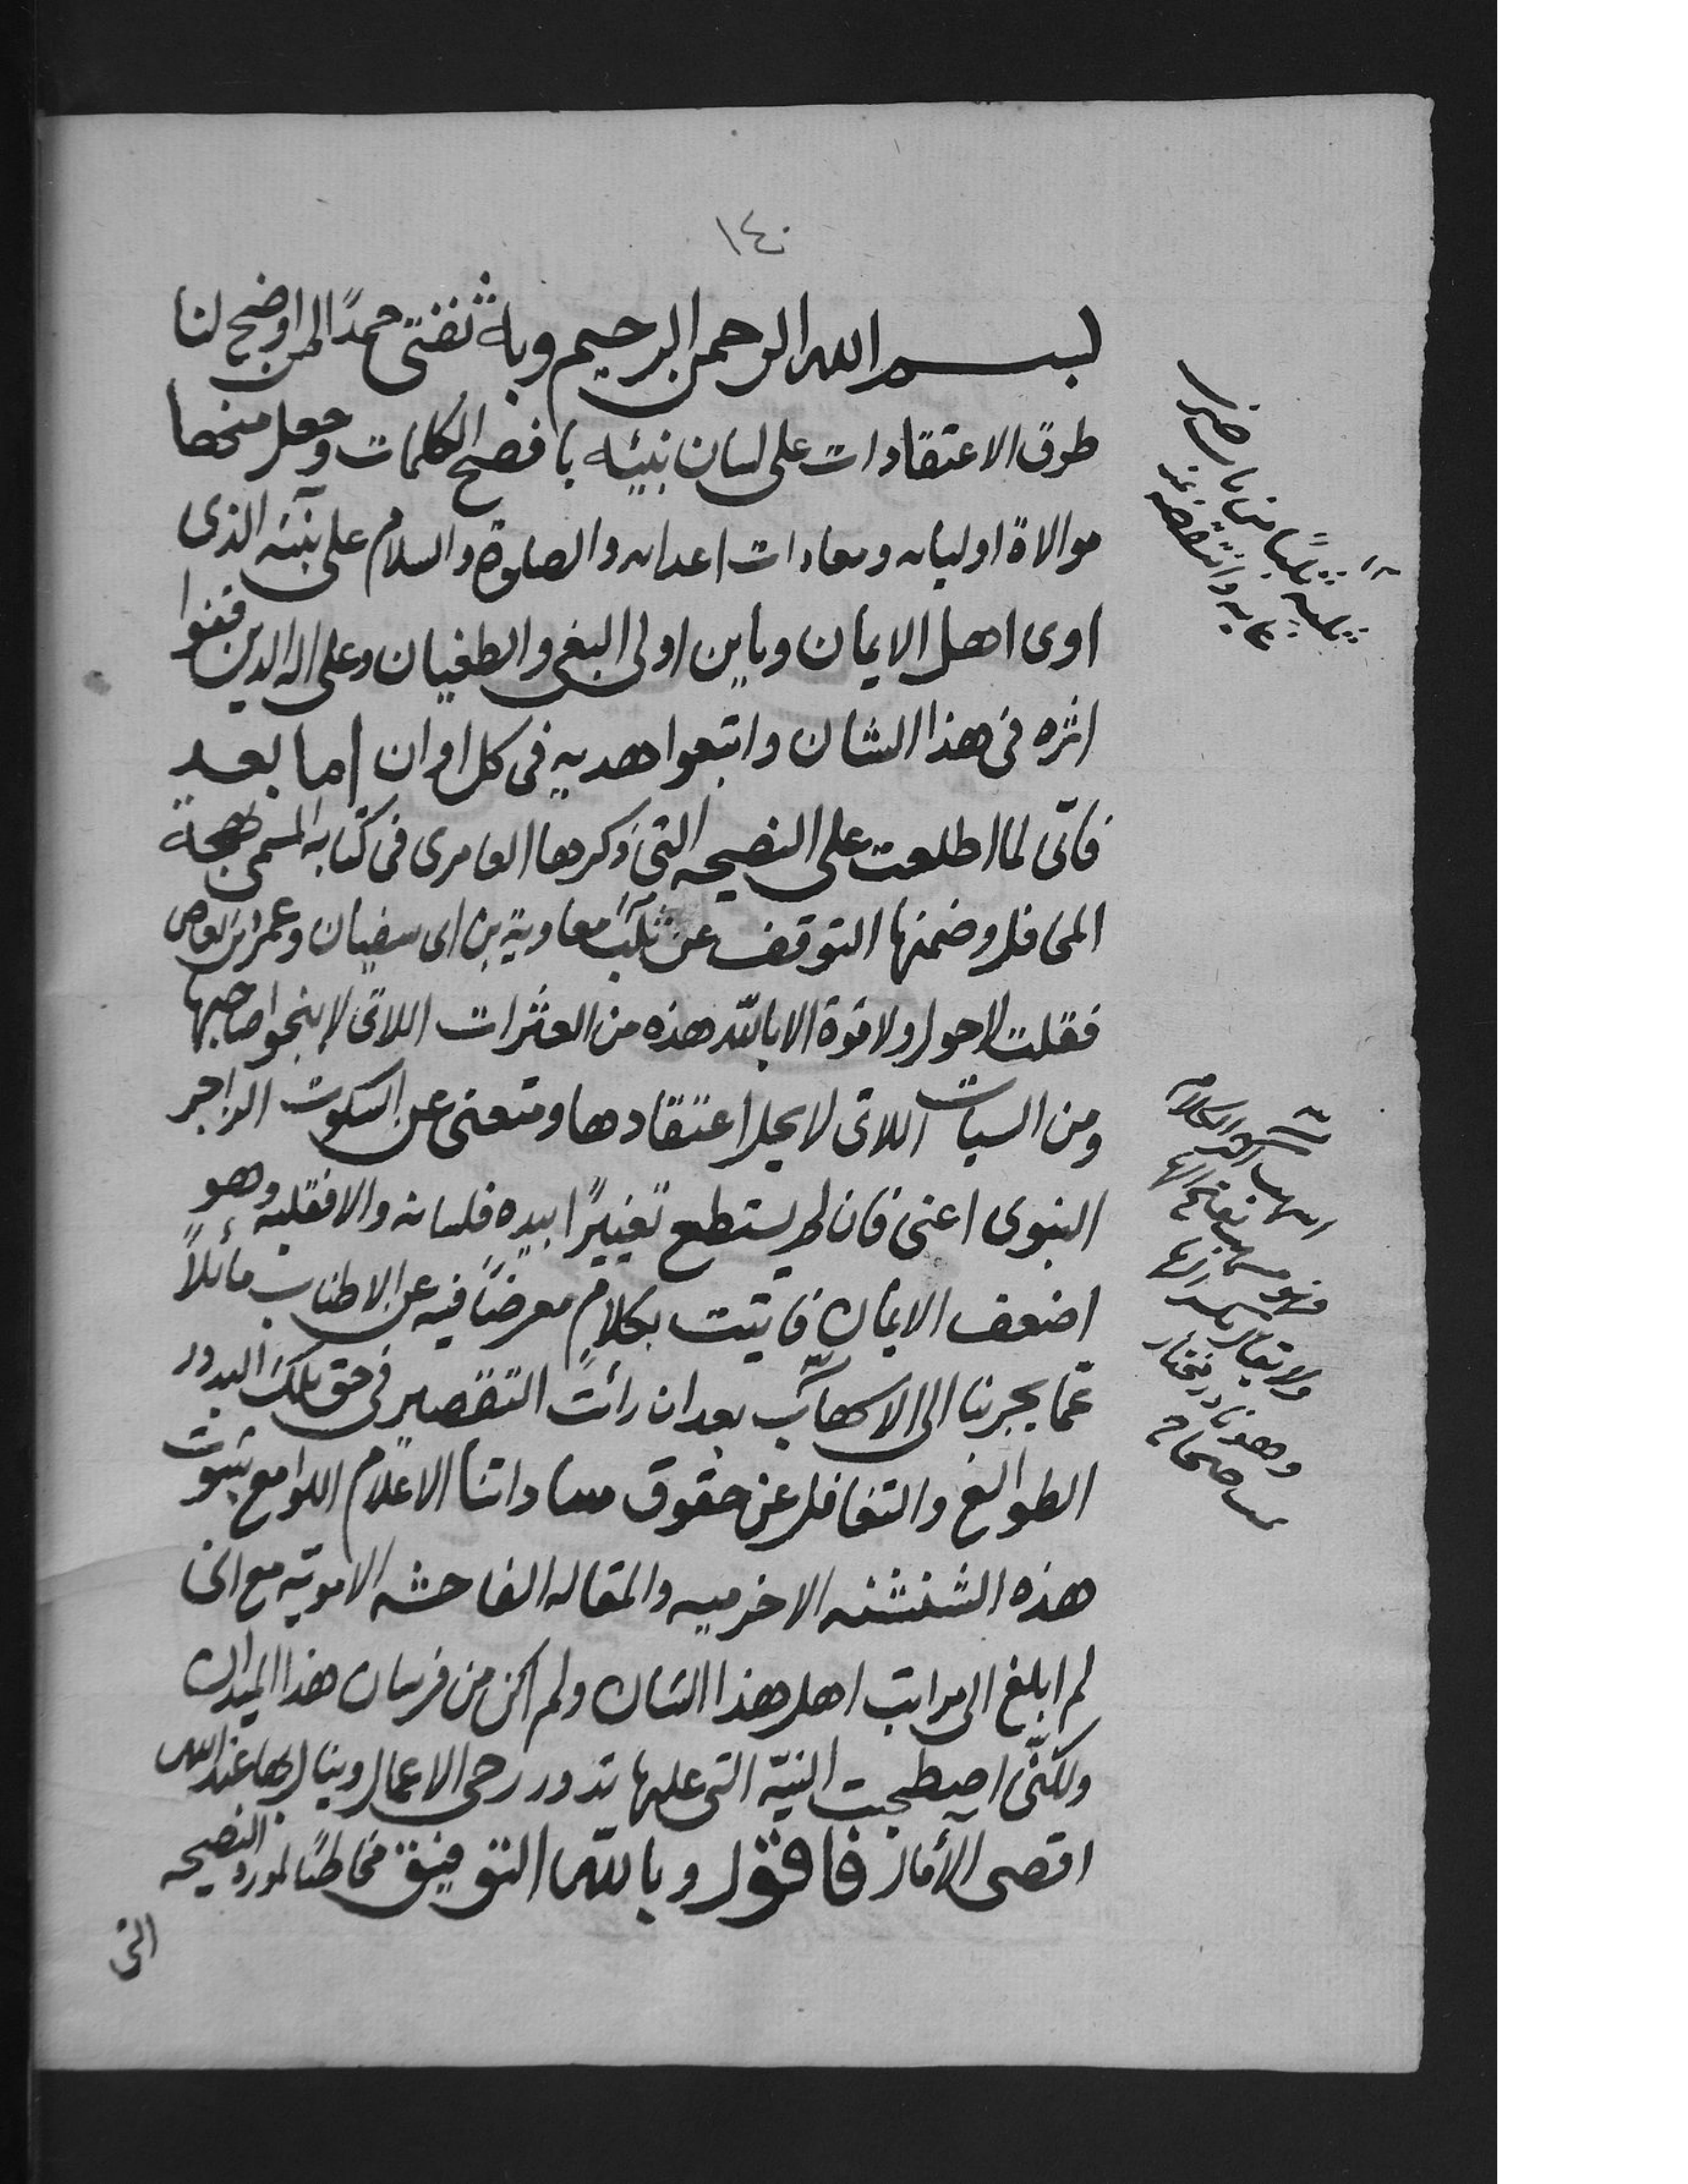 ١٤٠
بسم الله الرحمن الرحيم وبه ثقتى حمداً لمن اوضح لنا
طرق الاعتقادات على لسان نبيئه بافصح الكلمات وجعل منحها
موالاة اوليائه ومعادات اعدائه والصلوة والسلام على نبيئه الذى
اوى اهل الايمان وباين اولى البغى والطغيان وعلى اله الدين قفوا
اثره فى هذا الشان واتبعوا هديه فى كل اوان اما بعد
فانّى لما اطلعت على النصيحه التى ذكرها العامرى فى كتابه المسمى بهجة
المحافل وضمنها التوقف عن ثلب معاوية بن ابى سفيان وعمرو بن العاص
فقلت لاحول ولا قوة الا بالله هذه من العثرات اللاتى لا ينجوا صاحبها
ومن السيات اللاتى لا يحل اعتقادها ومنعنى عن السكوت الزاجر
النبوى اعنى فان لم يستطع تغييراً بيده فلسانه والا فقلبه وهو
اضعف الايمان فاتيت بكلامٍ معرضاً فيه عن الاطناب مائلاً
عمّا يجرنا الى الاسهاب بعد ان رأت التقصير فى حق تلك البدور
الطوالع والتغافل عن حقوق ساداتنا الاعلام اللوامع بثبوت
هذه الشنشنه الاخزميه والمقاله الفاحشه الامويّه مع انى
لم ابلغ الى مراتب اهل هذا الشان ولم اكن من فرسان هذا الميدان
ولكنّى اصطحبت النيّه التى عليها تدور رحى الاعمال وينال بها عند الله
اقصى الآمال فاقول وبالله التوفيق مخاطباً لمورد النصيحه
التى
ثلبه ثلباً من باب ضرب
عابه وانتقصه
اسهب اكثر الكلام
فهو مسهب بفتح الها
ولا يقال بكسر الها
وهو نادر مختار
صحاح